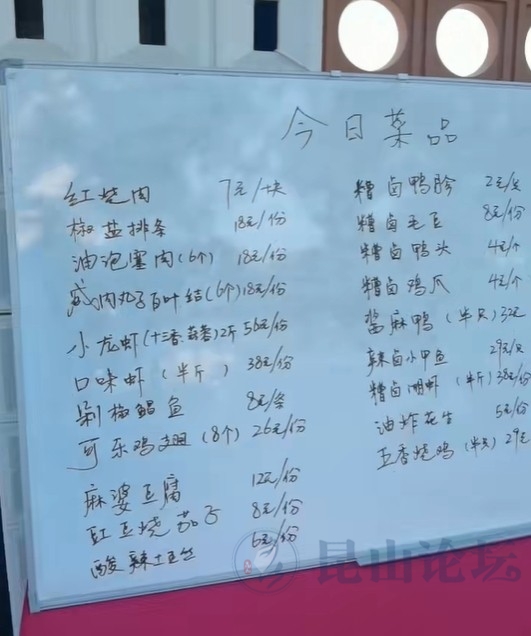 今日菜品
红烧肉 7元/块
椒盐排条 18元/份
油泡塞肉(6个) 18元/份
咸肉丸子百叶结(6个) 18元/份
小龙虾(十三香.蒜蓉)2斤 56元/份
口味虾(半斤) 38元/份
剁椒鲳鱼 8元/条
可乐鸡翅(8个) 26元/份
麻婆豆腐 12元/份
豇豆烧茄子 8元/份
酸辣土豆丝 6元/份
糟卤鸭胗 2元/只
糟卤毛豆 8元/份
糟卤鸭头 4元/个
糟卤鸡爪 4元/个
酱麻鸭(半只) 32元
辣卤小甲鱼 29元/只
糟卤湖虾(半斤) 38元/份
油炸花生 5元/份
五香烧鸡(半只) 29元
昆山论坛